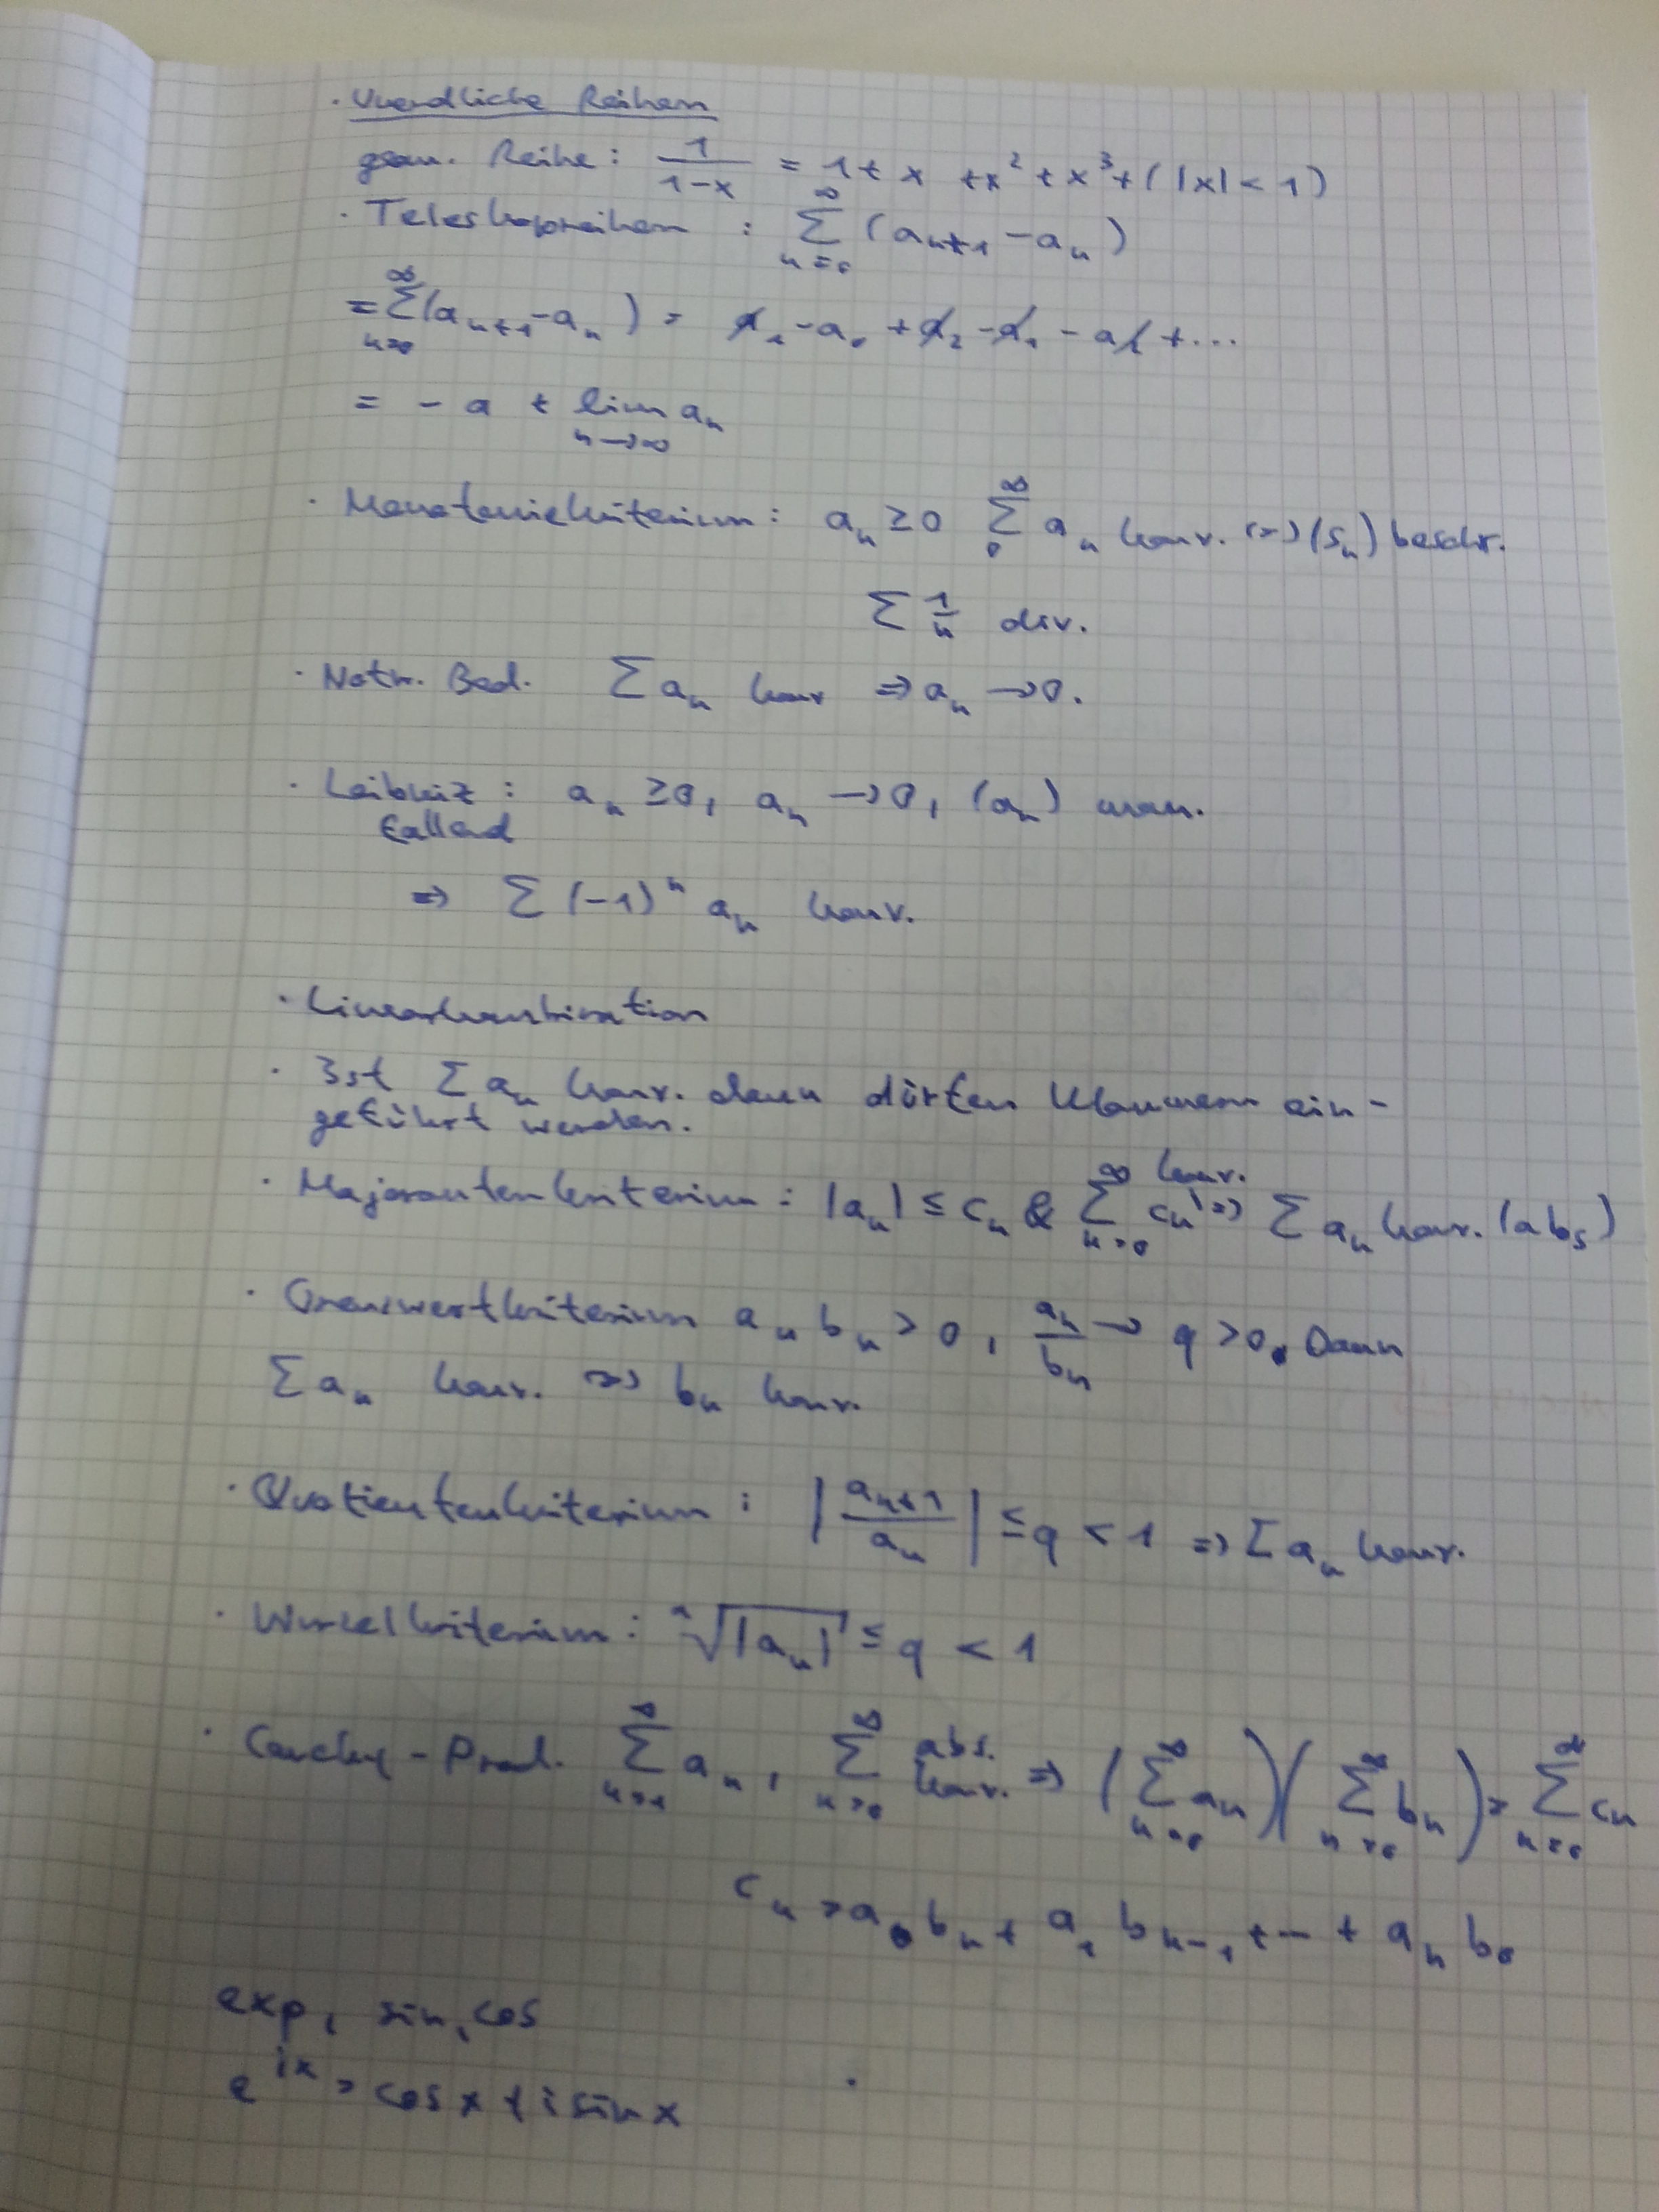 · Unendliche Reihen
geom. Reihe : 1/(1-x) = 1 + x + x² + x³ + ( |x| < 1 )
· Teleskopreihen : ∑_{n=0}^{∞} (a_{n+1} - a_n)
= ∑_{n=0}^{∞} (a_{n+1} - a_n) = a_1 - a_0 + a_2 - a_1 - a_2 + ...
= - a + lim_{n→∞} a_n
· Monotoniekriterium : a_n ≥ 0 ∑_0^∞ a_n konv. <=> (s_n) beschr.
∑ 1/n div.
· Notw. Bed. ∑ a_n konv => a_n → 0.
· Leibniz : a_n ≥ 0, a_n → 0, (a_n) mon.
fallend
=> ∑ (-1)^n a_n konv.
· Linearkombination
· Ist ∑ a_n konv. dann dürfen Klammern ein-
geführt werden.
· Majorantenkriterium : |a_n| ≤ c_n & ∑_{n=0}^{∞} c_n konv. => ∑ a_n konv. (abs)
· Grenzwertkriterium a_n b_n > 0, a_n/b_n → q > 0. Dann
∑ a_n konv. <=> b_n konv.
· Quotientenkriterium : |a_{n+1}/a_n| ≤ q < 1 => ∑ a_n konv.
· Wurzelkriterium : ⁿ√|a_n| ≤ q < 1
· Cauchy-Prod. ∑_{n=1}^{∞} a_n, ∑_{n=0}^{∞} abs. konv. => (∑_{n=0}^{∞} a_n)(∑_{n=0}^{∞} b_n) = ∑_{n=0}^{∞} c_n
c_n = a_0 b_n + a_1 b_{n-1} + ... + a_n b_0
exp, sin, cos
e^{ix} = cos x + i sin x